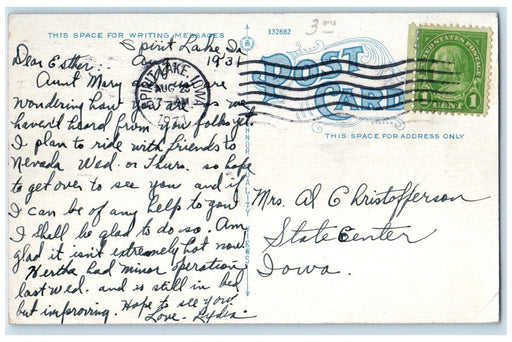 THIS SPACE FOR WRITING MESSAGES
132682
3.00
Spirit Lake, Ia
Aug 1931
Dear Esther:
Aunt Mary are
wondering how you are as we
haven't heard from you folks yet.
I plan to ride with friends to
Nevada Wed. or Thurs. so hope
to get over to see you and if
I can be of any help to you
I shall be glad to do so. Am
glad it isn't extremely hot now.
Hertha had minor operation
last wed. and is still in bed
but improving. Hope to see you.
Love - Lydia
SPIRIT LAKE, IOWA
AUG
1931
POST
CARD
UNITED STATES POSTAGE
1 CENT 1
THIS SPACE FOR ADDRESS ONLY
Mrs. Al Christofferson
State Center
Iowa.